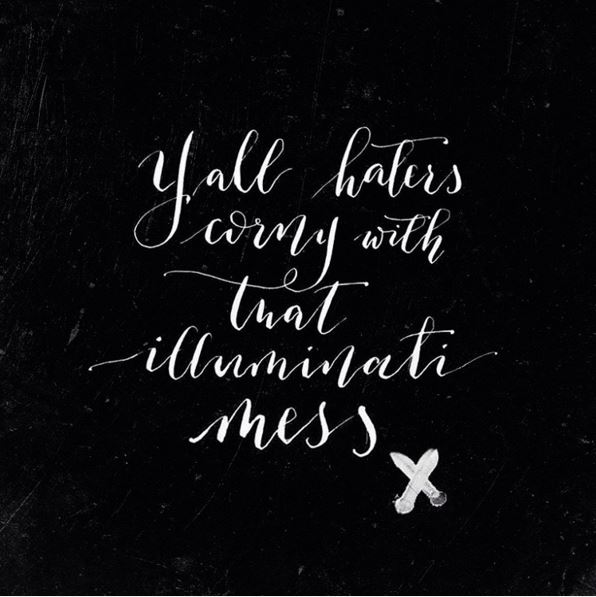 Y'all haters
corny with
that
illuminati
mess